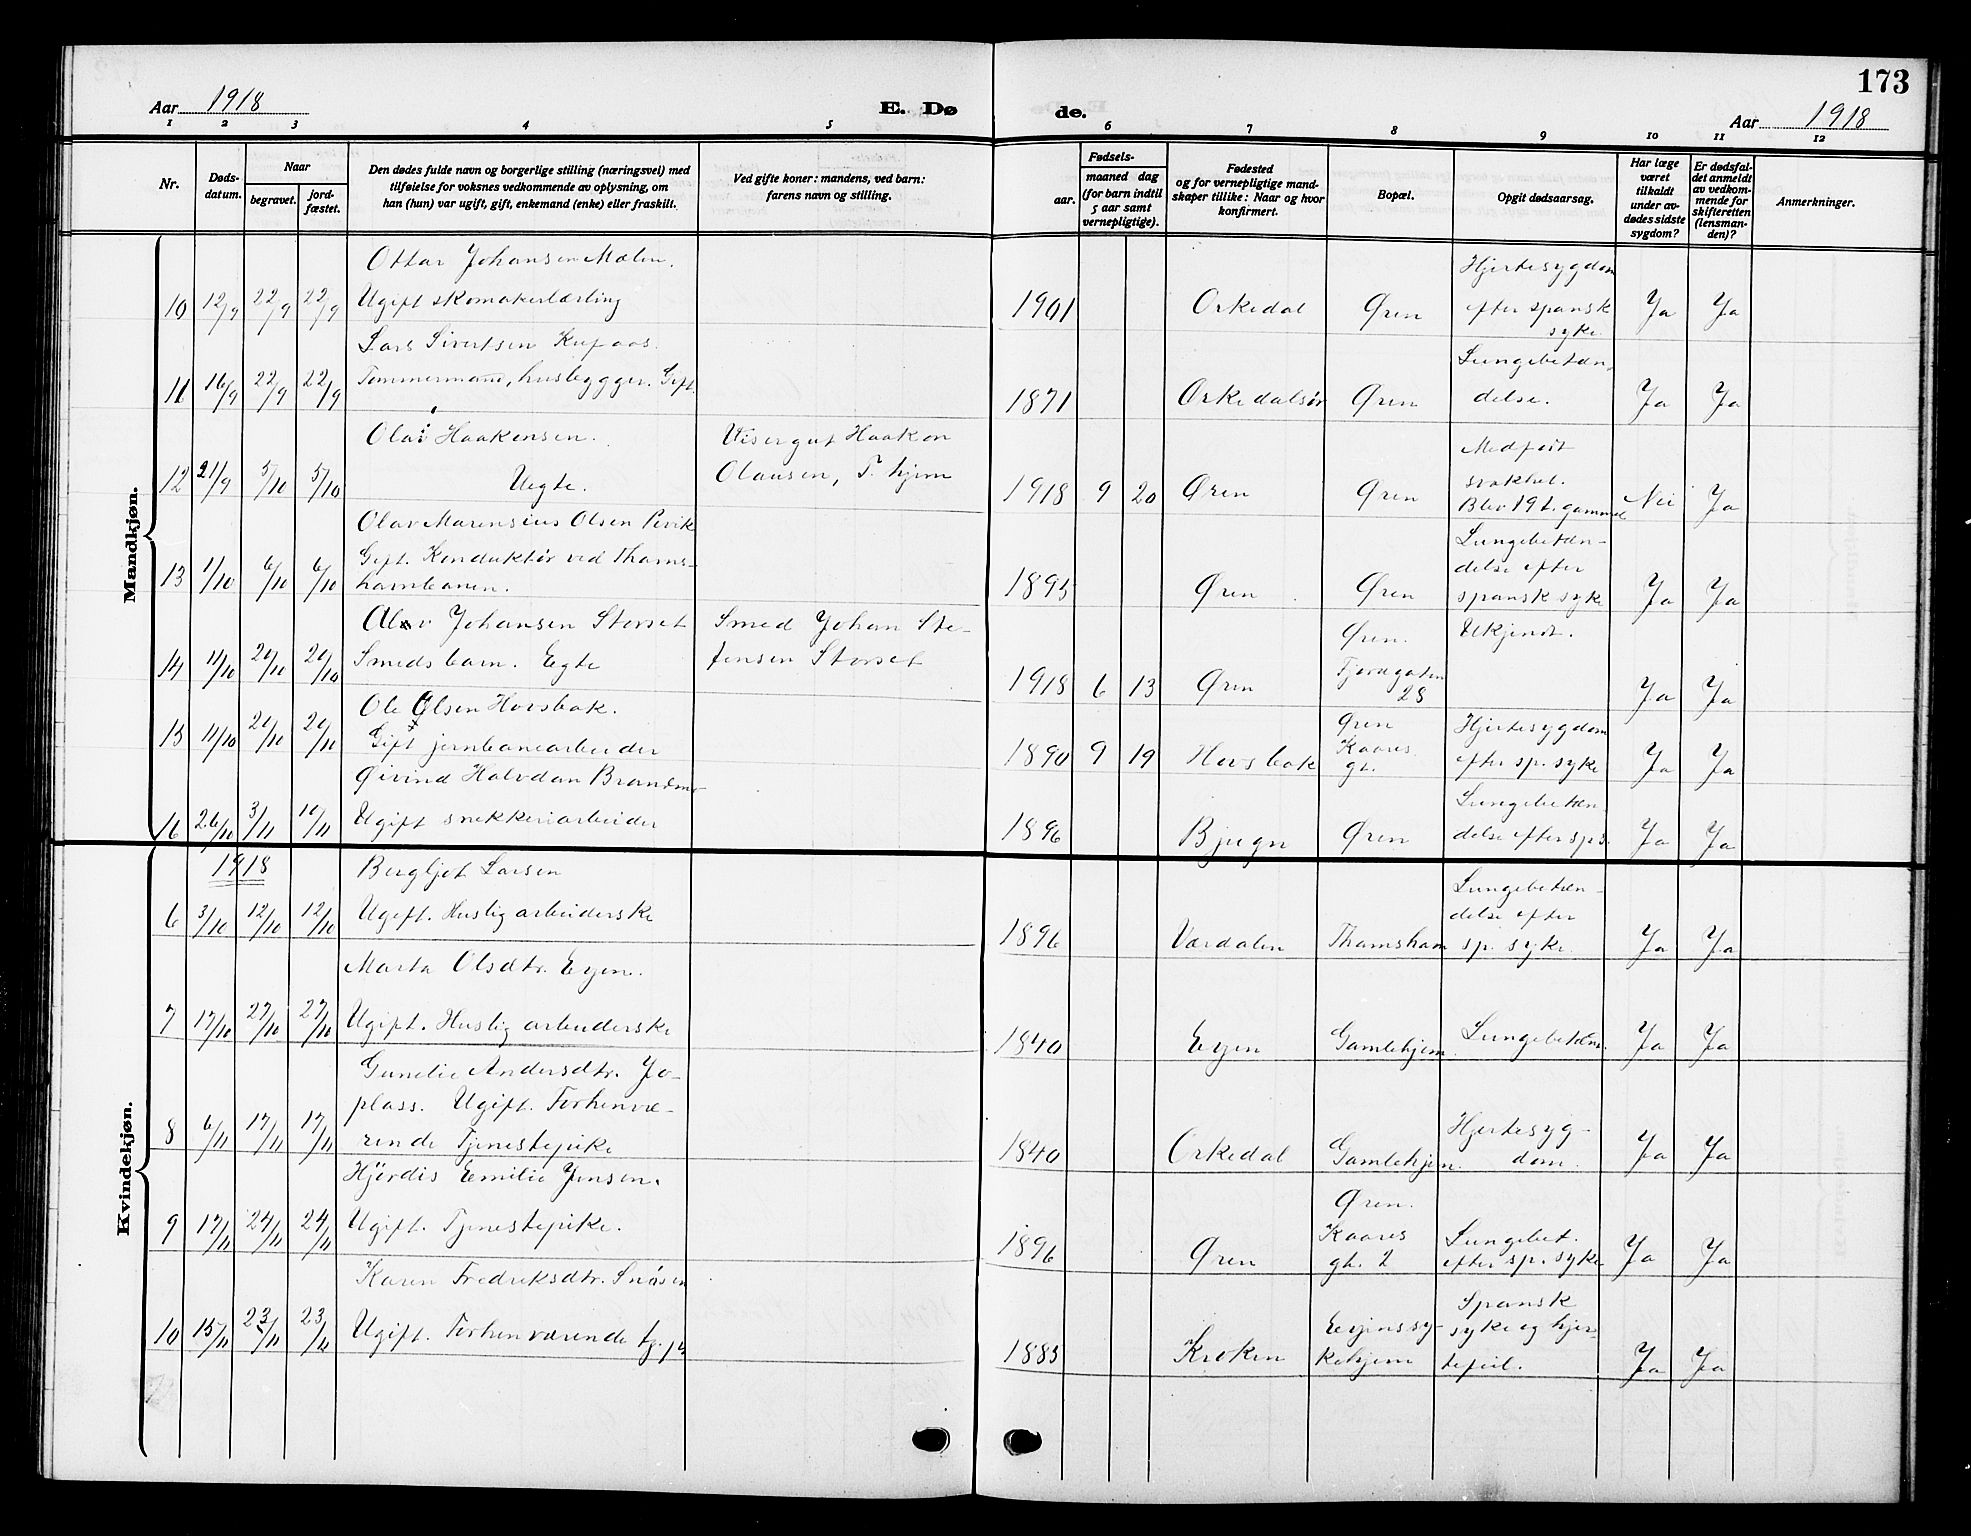 173
Aar 1918 E. Døde. Aar 1918
1 2 3 4 5 6 7 8 9 10 11 12
Nr.
Døds-
datum.
Naar
begravet.
jord-
fæstet.
Den dødes fulde navn og borgerlige stilling (næringsvei) med
tilføielse for voksnes vedkommende av oplysning, om
han (hun) var ugift, gift, enkemand (enke) eller fraskilt.
Ved gifte koner: mandens, ved barn:
farens navn og stilling.
Fødsels-
aar. maaned dag
(for barn indtil
5 aar samt
vernepligtige).
Fødested
og for vernepligtige mand-
skaper tillike: Naar og hvor
konfirmert.
Bopæl.
Opgit dødsaarsag.
Har læge
været
tilkaldt
under av-
dødes sidste
sygdom?
Er dødsfal-
det anmeldt
av vedkom-
mende for
skifteretten
(lensman-
den)?
Anmerkninger.
Mandkjøn.
Ottar Johansen Mælen.
10 12/9 22/9 22/9 Ugift skomakerlærling
1901 Orkedal Øren
Hjertesygdom
efter spansk
syke.
Ja Ja
Lars Sivertsen Kufaas.
11 16/9 22/9 22/9 Tømmermand, husbygger. Gift.
1871 Orkedalsør Øren
Lungebetæn-
delse.
Ja Ja
Olai Haakensen.
12 21/9 5/10 5/10 Uegte.
Visergut Haakon
Olausen, T.hjem
1918 9 20 Øren Øren
Medfødt
svakhet.
Blev 19 t. gammel
Nei Ja
Olav Marensius Olsen Pevik
13 1/10 6/10 6/10 Gift. Konduktør ved Thams-
havnbanen.
1895 Øren Øren
Lungebetæn-
delse efter
spansk syke
Ja Ja
Alav Johansen Storset
14 11/10 20/10 20/10 Smedsbarn. Egte
Smed Johan Ste-
fensen Storset
1918 6 13 Øren
Øren.
Fjordgaten
28
Ukjendt.
Ja Ja
Ole Olsen Hovsbak.
15 11/10 20/10 20/10 Gift jernbanearbeider
1890 9 19 Hovsbak
Øren
Kaares
gt.
Hjertesygdom
efter sp. syke
Ja Ja
Øivind Halvdan Brandmo
16 26/10 3/11 10/11 Ugift snekkeriarbeider
1896 Bjugn Øren
Lungebetæn
delse efter sp s.
Ja Ja
Kvindekjøn.
1918
Bergljot Larsen
6 3/10 12/10 12/10 Ugift. Huslig arbeiderske
1896 Værdalen Thamshavn
Lungebetæn-
delse efter
sp. syke.
Ja Ja
Marta Olsdtr. Eyen.
7 17/10 27/10 27/10 Ugift. Huslig arbeiderske
1840 Eyen Gamlehjem. Lungebetæn. Ja Ja
Gunelie Andersdtr. Jo-
plass. Ugift. Forhenvæ-
8 6/11 17/11 17/11 rende Tjenestepike
1840 Orkedal Gamlehjem.
Hjertesyg-
dom.
Ja Ja
Hjördis Emilie Jensen.
9 17/11 24/11 24/11 Ugift. Tjenestepike.
1896 Øren
Øren.
Kaares
gt. 2
Lungebet.
efter sp. syke
Ja Ja
Karen Fredriksdtr. Snøsen
10 15/11 23/11 23/11 Ugift. Forhenværende tj. pi.
1883 Kroken
Evjens sy-
kehjem
Spansk
syke og hjer-
tefeil.
Ja Ja